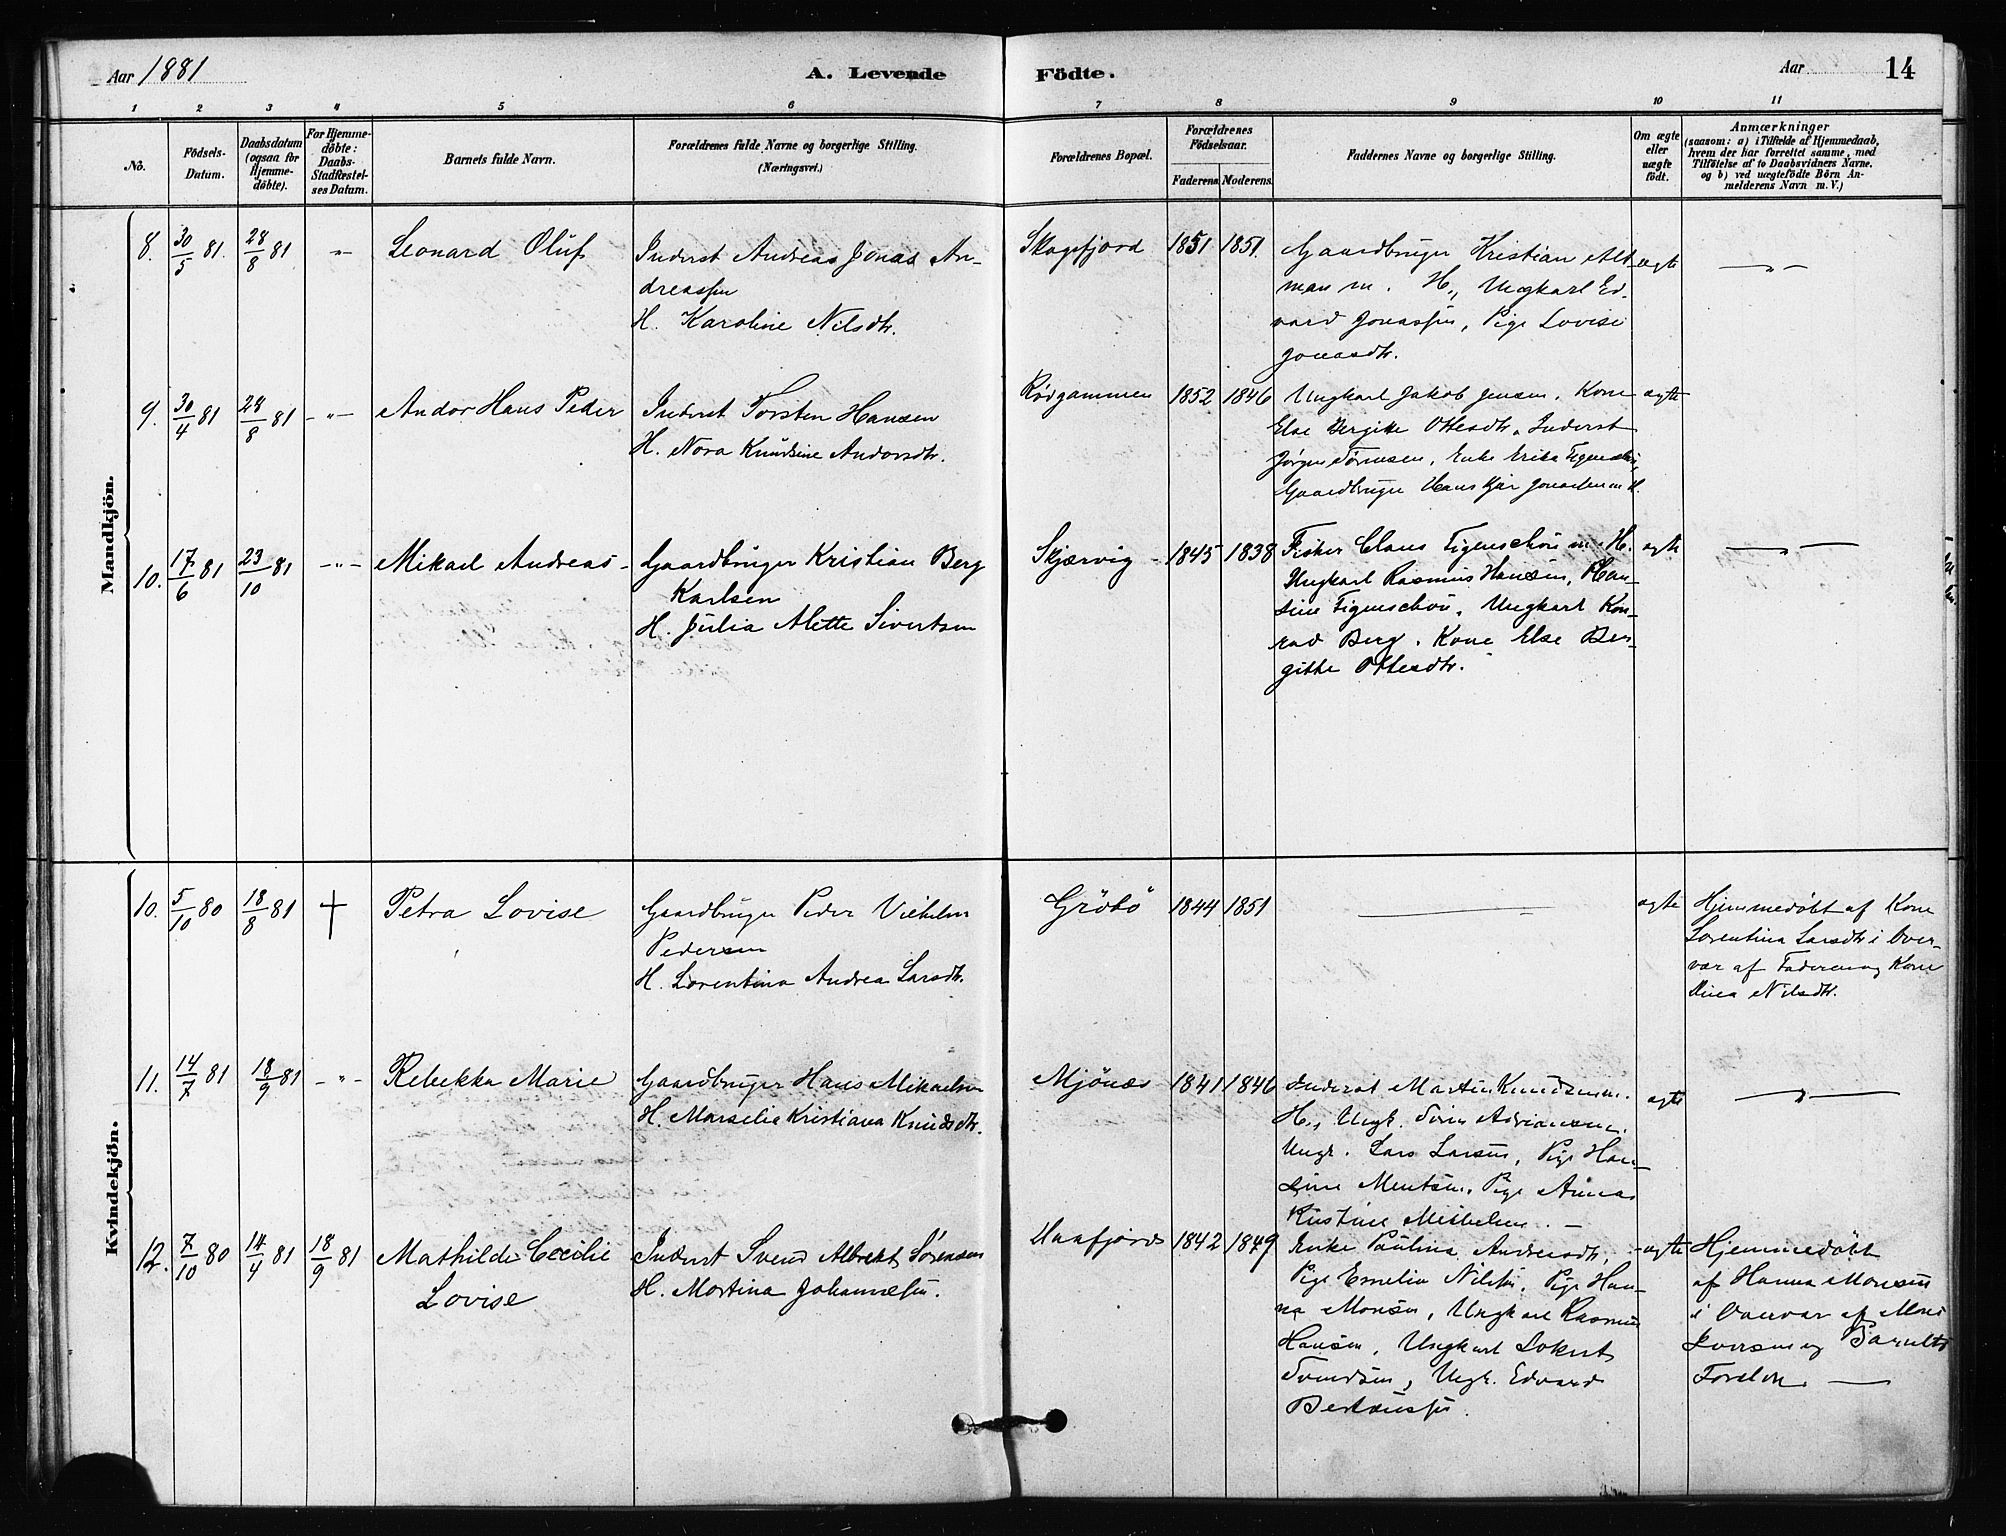 Aar 1881
A. Levende
Födte.
Aar
14
1 2 3 4 5 6 7 8 9 10 11
No.
Födsels-
Datum.
Daabsdatum
(ogsaa for
Hjemme-
döbte).
For Hjemme-
döbte:
Daabs-
Stadfæstel-
ses Datum.
Barnets fulde Navn.
Forældrenes fulde Navne og borgerlige Stilling.
(Næringsvei.)
Forældrenes Bopæl.
Forældrenes
Födselsaar.
Faderens.
Moderens.
Faddernes Navne og borgerlige Stilling.
Om ægte
eller
uægte
födt.
Anmærkninger
(saasom: a) i Tilfælde af Hjemmedaab,
hvem der har forrettet samme, med
Tilföielse af to Daabsvidners Navne,
og b) ved uægtefödte Börn An-
melderens Navn m. V.)
Mandkjön.
8. 30/5 81. 28/8 81 -"- Leonard Oluf
Inderst Andreas Jonas An-
dreassen
H. Karoline Nilsdtr.
Skogsfjord 1851 1851.
Gaardbruger Kristian Alt-
man m. H., Ungkarl Ed-
vard Jonassen, Pige Lovise
Jonasdtr.
ægte -"-
9. 30/4 81 28/8 81 -"- Andor Hans Peder
Inderst Torsten Hansen
H. Nora Knudsine Andorsdtr.
Rödgammen 1852 1846
Ungkarl Jakob Jensen, Kone
Else Bergitte Ottesdtr. Inderst
Jørgen Sørensen, Enke Erika Figenschou,
Gaardbruger Hans Kjær Jonassen m H.
ægte
10. 17/6 81 23/10 81 -"- Mikael Andreas
Gaardbruger Kristian Berg
Karlsen
H. Julia Alette Sivertsen
Skjærvig 1845 1838
Fisker Claus Figenschou m. H.
Ungkarl Rasmus Hansen, Han-
sine Figenschou, Ungkarl Kon-
rad Berg. Kone Else Ber-
gitte Ottesdtr.
ægte -"-
Kvindekjön.
10. 5/10 80 18/8 81 † Petra Lovise
Gaardbruger Peder Vilhelm
Pedersen
H. Lorentina Andrea Larsdtr.
Grötö 1844 1851
ægte
Hjemmedöbt af Kone
Lorentina Larsdtr i Over-
vær af Faderen og Kone
Nilsdtr.
11. 14/7 81 18/9 81 -"- Rebekka Marie
Gaardbruger Hans Mikaelsen
H. Marselie Kristiana Knudsdtr.
Mjönæs 1841 1846
Inderst Martin Knudsen m.
H., Ungk. Adriansen,
Ungk. Lars Larsen, Pige Han-
sine Mentsen, Pige Anna
Kristine Mikelsen. —
ægte -"-
12. 7/10 80 14/4 81 18/9 81 Mathilde Cecilie
Lovise
Inderst Svend Albrekt Sørensen
H. Martina Johannesen.
1842 1849
Enke Paulina Andreasdtr,
Pige Emelia Nilsen, Pige Han-
na Monsen, Ungkarl Rasmus
Hansen, Ungkarl
Svendsen, Ungk. Edvard
ægte
Hjemmedöbt
af Hanna Monsen
i Overvær af Mons
Iversen og Barnets
Forældre —